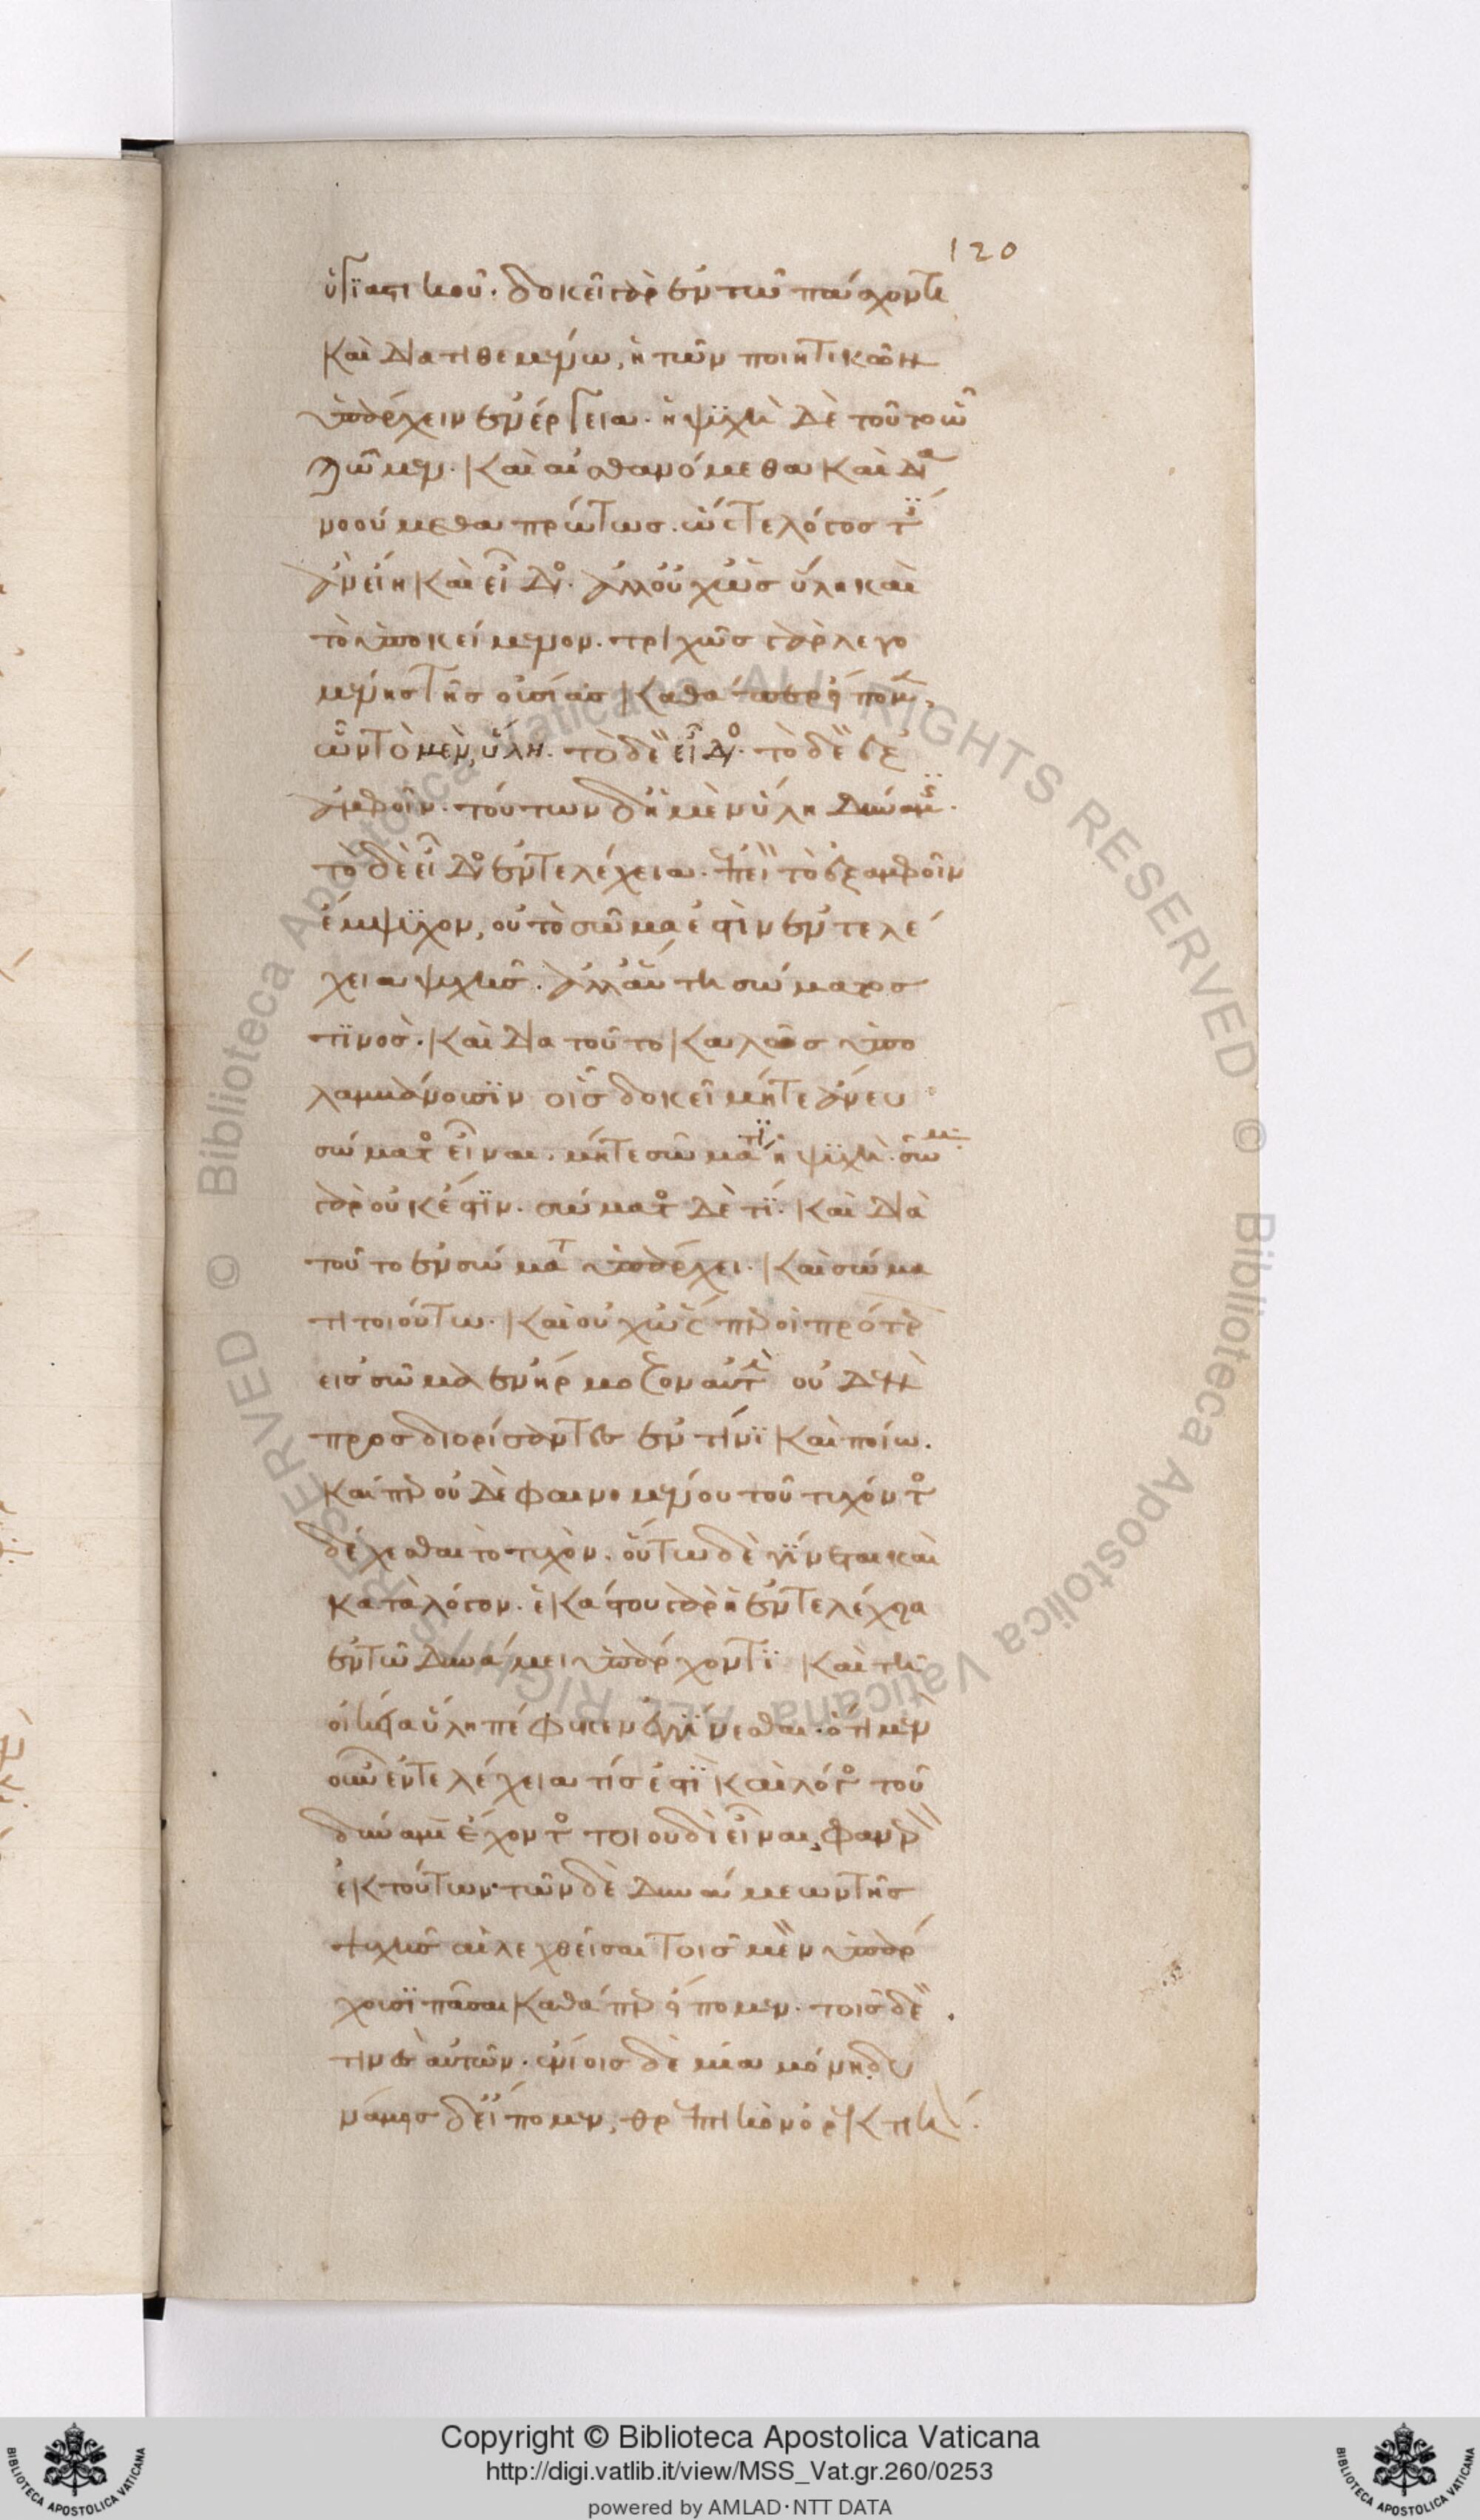 120
ὑγιαστικοῦ. δοκεῖ γὰρ ἐν τῶ πάσχοντι
καὶ διατιθεμένω, ἡ τῶν ποιητικῶν
ὑπάρχειν ἐνέργεια. ἡ ψϋχὴ δὲ τοῦτο ὧ
ζῶμεν. καὶ αἰσθανόμεθα καὶ δια
νοούμεθα πρώτως. ὥστε λόγος τϊς
ἂν εἴη καὶ εἶδος. ἀλλ' οὐχ ὡς ὕλη καὶ
τὸ ὑποκείμενον. τριχῶς γὰρ λεγο
μένης τῆς οὐσίας καθάπερ εἴπομεν,
ὧν τὸ μὲν, ὕλη. τὸ δὲ εἶδος. τὸ δὲ ἐξ
ἀμφοῖν. τούτων δ' ἡ μὲν ὕλη δύναμϊς.
τὸ δὲ εἶδος ἐντελέχεια. ἐπεὶ τὸ ἐξ ἀμφοῖν
ἔμψϋχον, οὐ τὸ σῶμα ἐστὶν ἐντελέ
χεια ψυχῆς. ἀλλ' αὕτη σώματος
τϊνος. καὶ δια τοῦτο καλῶς ὑπο
λαμβάνουσϊν οἷς δοκεῖ μήτε ἄνευ
σώματος εἶναι. μήτε σῶμα τϊ ἡ ψϋχή. σῶμα
γὰρ οὐκ ἔστϊν. σώματος δὲ τϊ. καὶ διὰ
τοῦτο ἐν σώματι ὑπάρχει. καὶ σώμα
τι τοιούτω. καὶ οὐχ ὥσπερ οἱ πρότερον
εἰς σῶμα ἐνήρμοζον αὐτὴν οὐδὲν
προσδιορίσαντες ἐν τίνϊ καὶ ποίω.
καίπερ οὐδὲ φαινομένου τοῦ τυχόντος
δέχεσθαι τὸ τυχὸν. οὕτω δὲ γίνεται καὶ
κατὰ λόγον. ἑκάστου γὰρ ἡ ἐντελέχεια
ἐν τῶ δυνάμει ὑπάρχοντϊ καὶ τῆ
οἰκεία ὕλη πέφυκεν ἐγγίνεσθαι. ὅτι μὲν
οὖν ἐντελέχεια τίς ἐστϊ καὶ λόγος τοῦ
δύναμιν ἔχοντος τοιουδὶ εἶναι, φανερὸν
ἐκ τούτων. τῶν δὲ δυνάμεων τῆς
ψυχῆς αἱ λεχθεῖσαι τοῖς μὲν ὑπάρ
χουσϊ πᾶσαι καθάπερ εἴπομεν. τοῖς δὲ
τινὲς αὐτῶν. ἐνίοις δὲ μία μόνη. δυ
νάμεις δ' εἴπομεν, θρεπτικὸν ὀρεκτικὸν